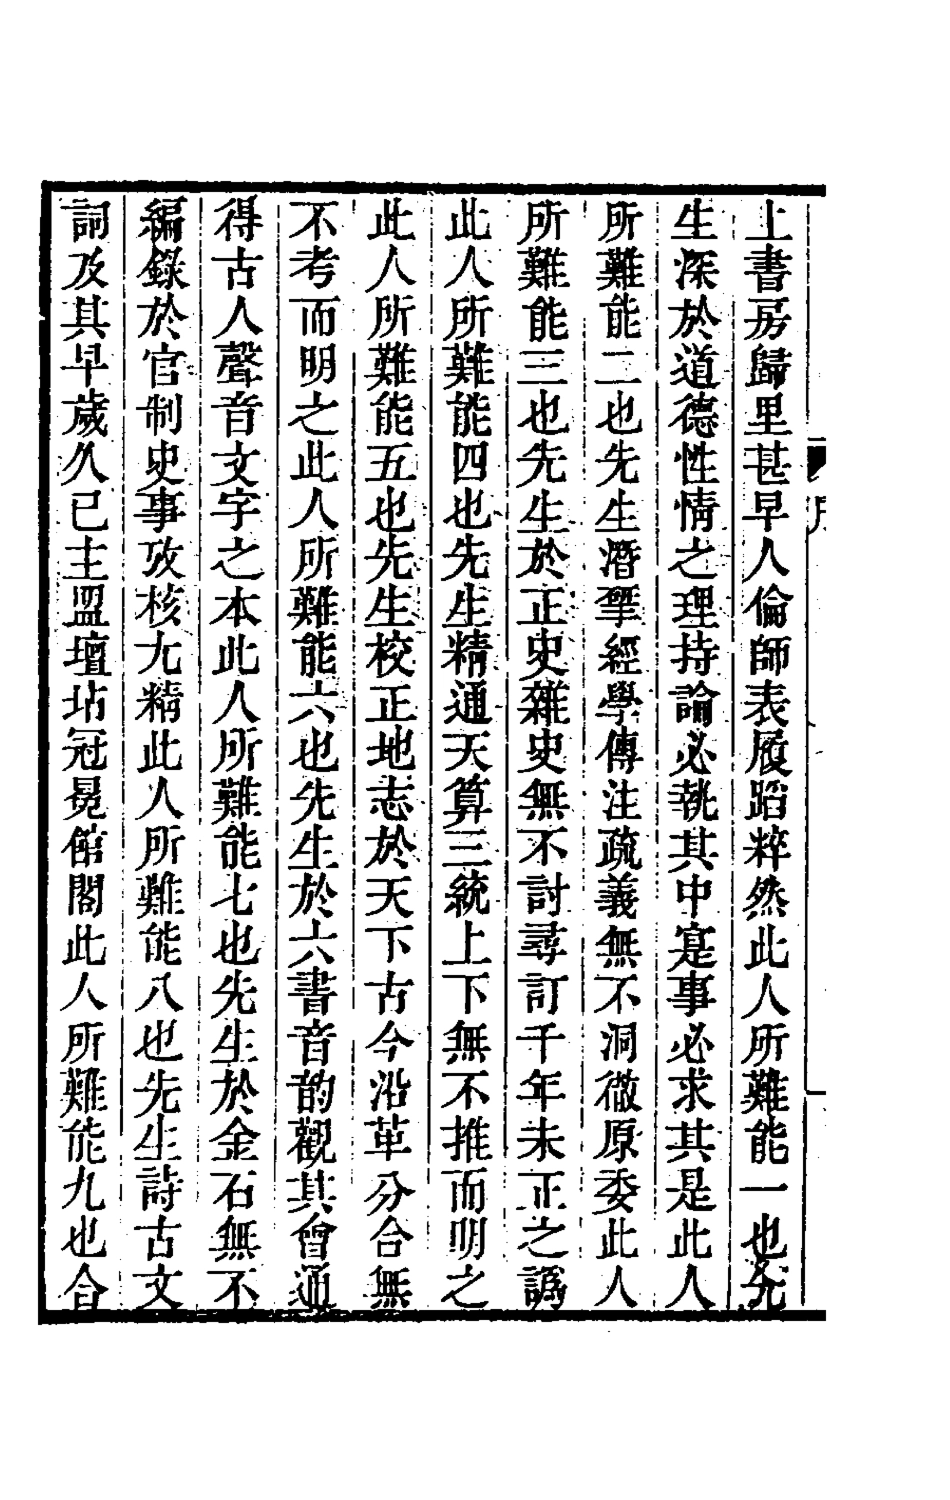 上書房歸里甚早人倫師表履蹈粹然此人所難能一也先
生深於道德性情之理持論必執其中寔事必求其是此人
所難能二也先生潛揅經學傳注疏義無不洞徹原委此人
所難能三也先生於正史雜史無不討尋訂千年未正之譌
此人所難能四也先生精通天算三統上下無不推而明之
此人所難能五也先生校正地志於天下古今沿革分合無
不考而明之此人所難能六也先生於六書音韵觀其會通
得古人聲音文字之本此人所難能七也先生於金石無不
編錄於官制史事攷核尤精此人所難能八也先生詩古文
詞及其早歲久已主盟壇坫冠冕館閣此人所難能九也合